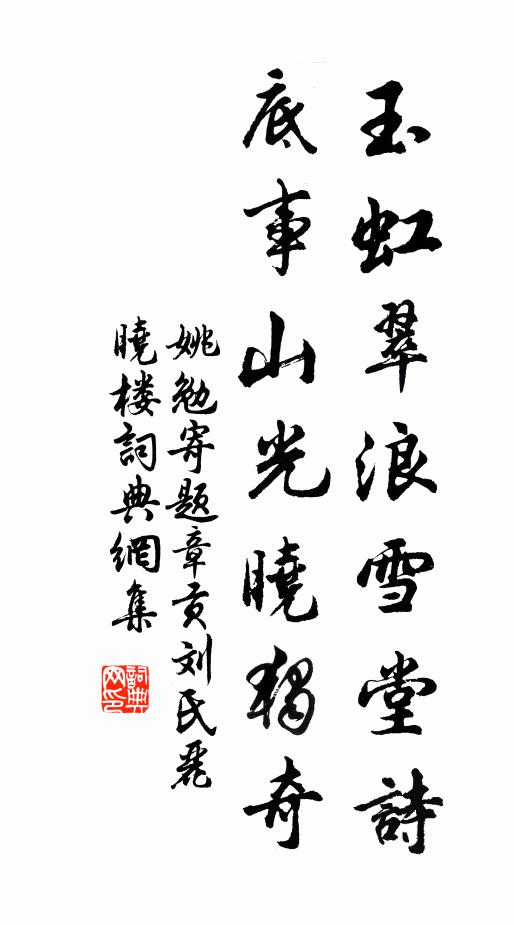 玉虹翠浪雪堂詩
底事山光曉獨奇
姚勉寄题章贡刘民麗
曉楼詞典網集
詞典网印